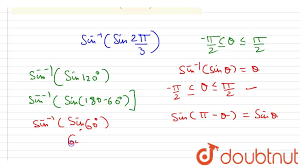 sin⁻¹(sin 2π/3)
-π/2 ≤ θ ≤ π/2
sin⁻¹(sin 120°)
sin⁻¹(sin θ) = θ
sin⁻¹(sin(180-60°)]
-π/2 ≤ θ ≤ π/2 –
sin⁻¹(sin 60°)
sin(π - θ) = sin θ
6